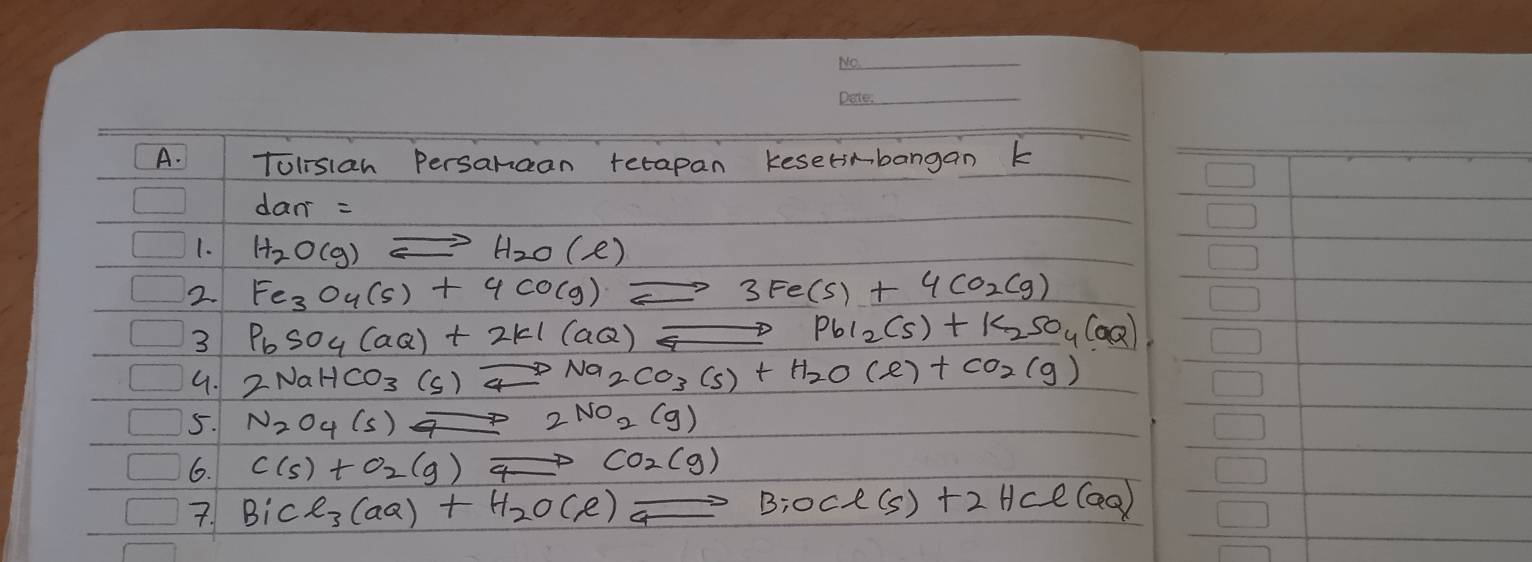 No.
Date:
A. Tulislah Persamaan tetapan kesetimbangan k
dari =
1. H2O(g) ⇌ H2O (l)
2. Fe3O4(s) + 4CO(g) ⇌ 3Fe(s) + 4CO2(g)
3 PbSO4 (aq) + 2KI (aq) ⇌ PbI2(s) + K2SO4(aq)
4. 2NaHCO3 (s) ⇌ Na2CO3(s) + H2O (l) + CO2 (g)
5. N2O4 (s) ⇌ 2NO2 (g)
6. C(s) + O2(g) ⇌ CO2(g)
7. BiCl3(aq) + H2O(l) ⇌ BiOCl(s) + 2HCl(aq)